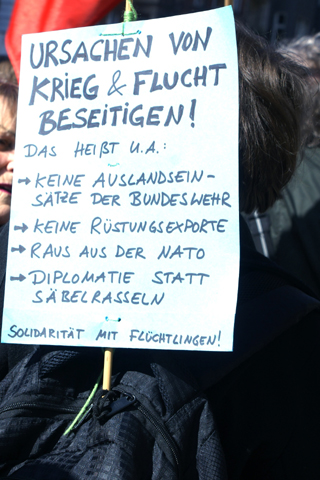 URSACHEN VON
KRIEG & FLUCHT
BESEITIGEN!
DAS HEIßT U.A.:
→ KEINE AUSLANDSEIN-
SÄTZE DER BUNDESWEHR
→ KEINE RÜSTUNGSEXPORTE
→ RAUS AUS DER NATO
→ DIPLOMATIE STATT
SÄBELRASSELN
SOLIDARITÄT MIT FLÜCHTLINGEN!